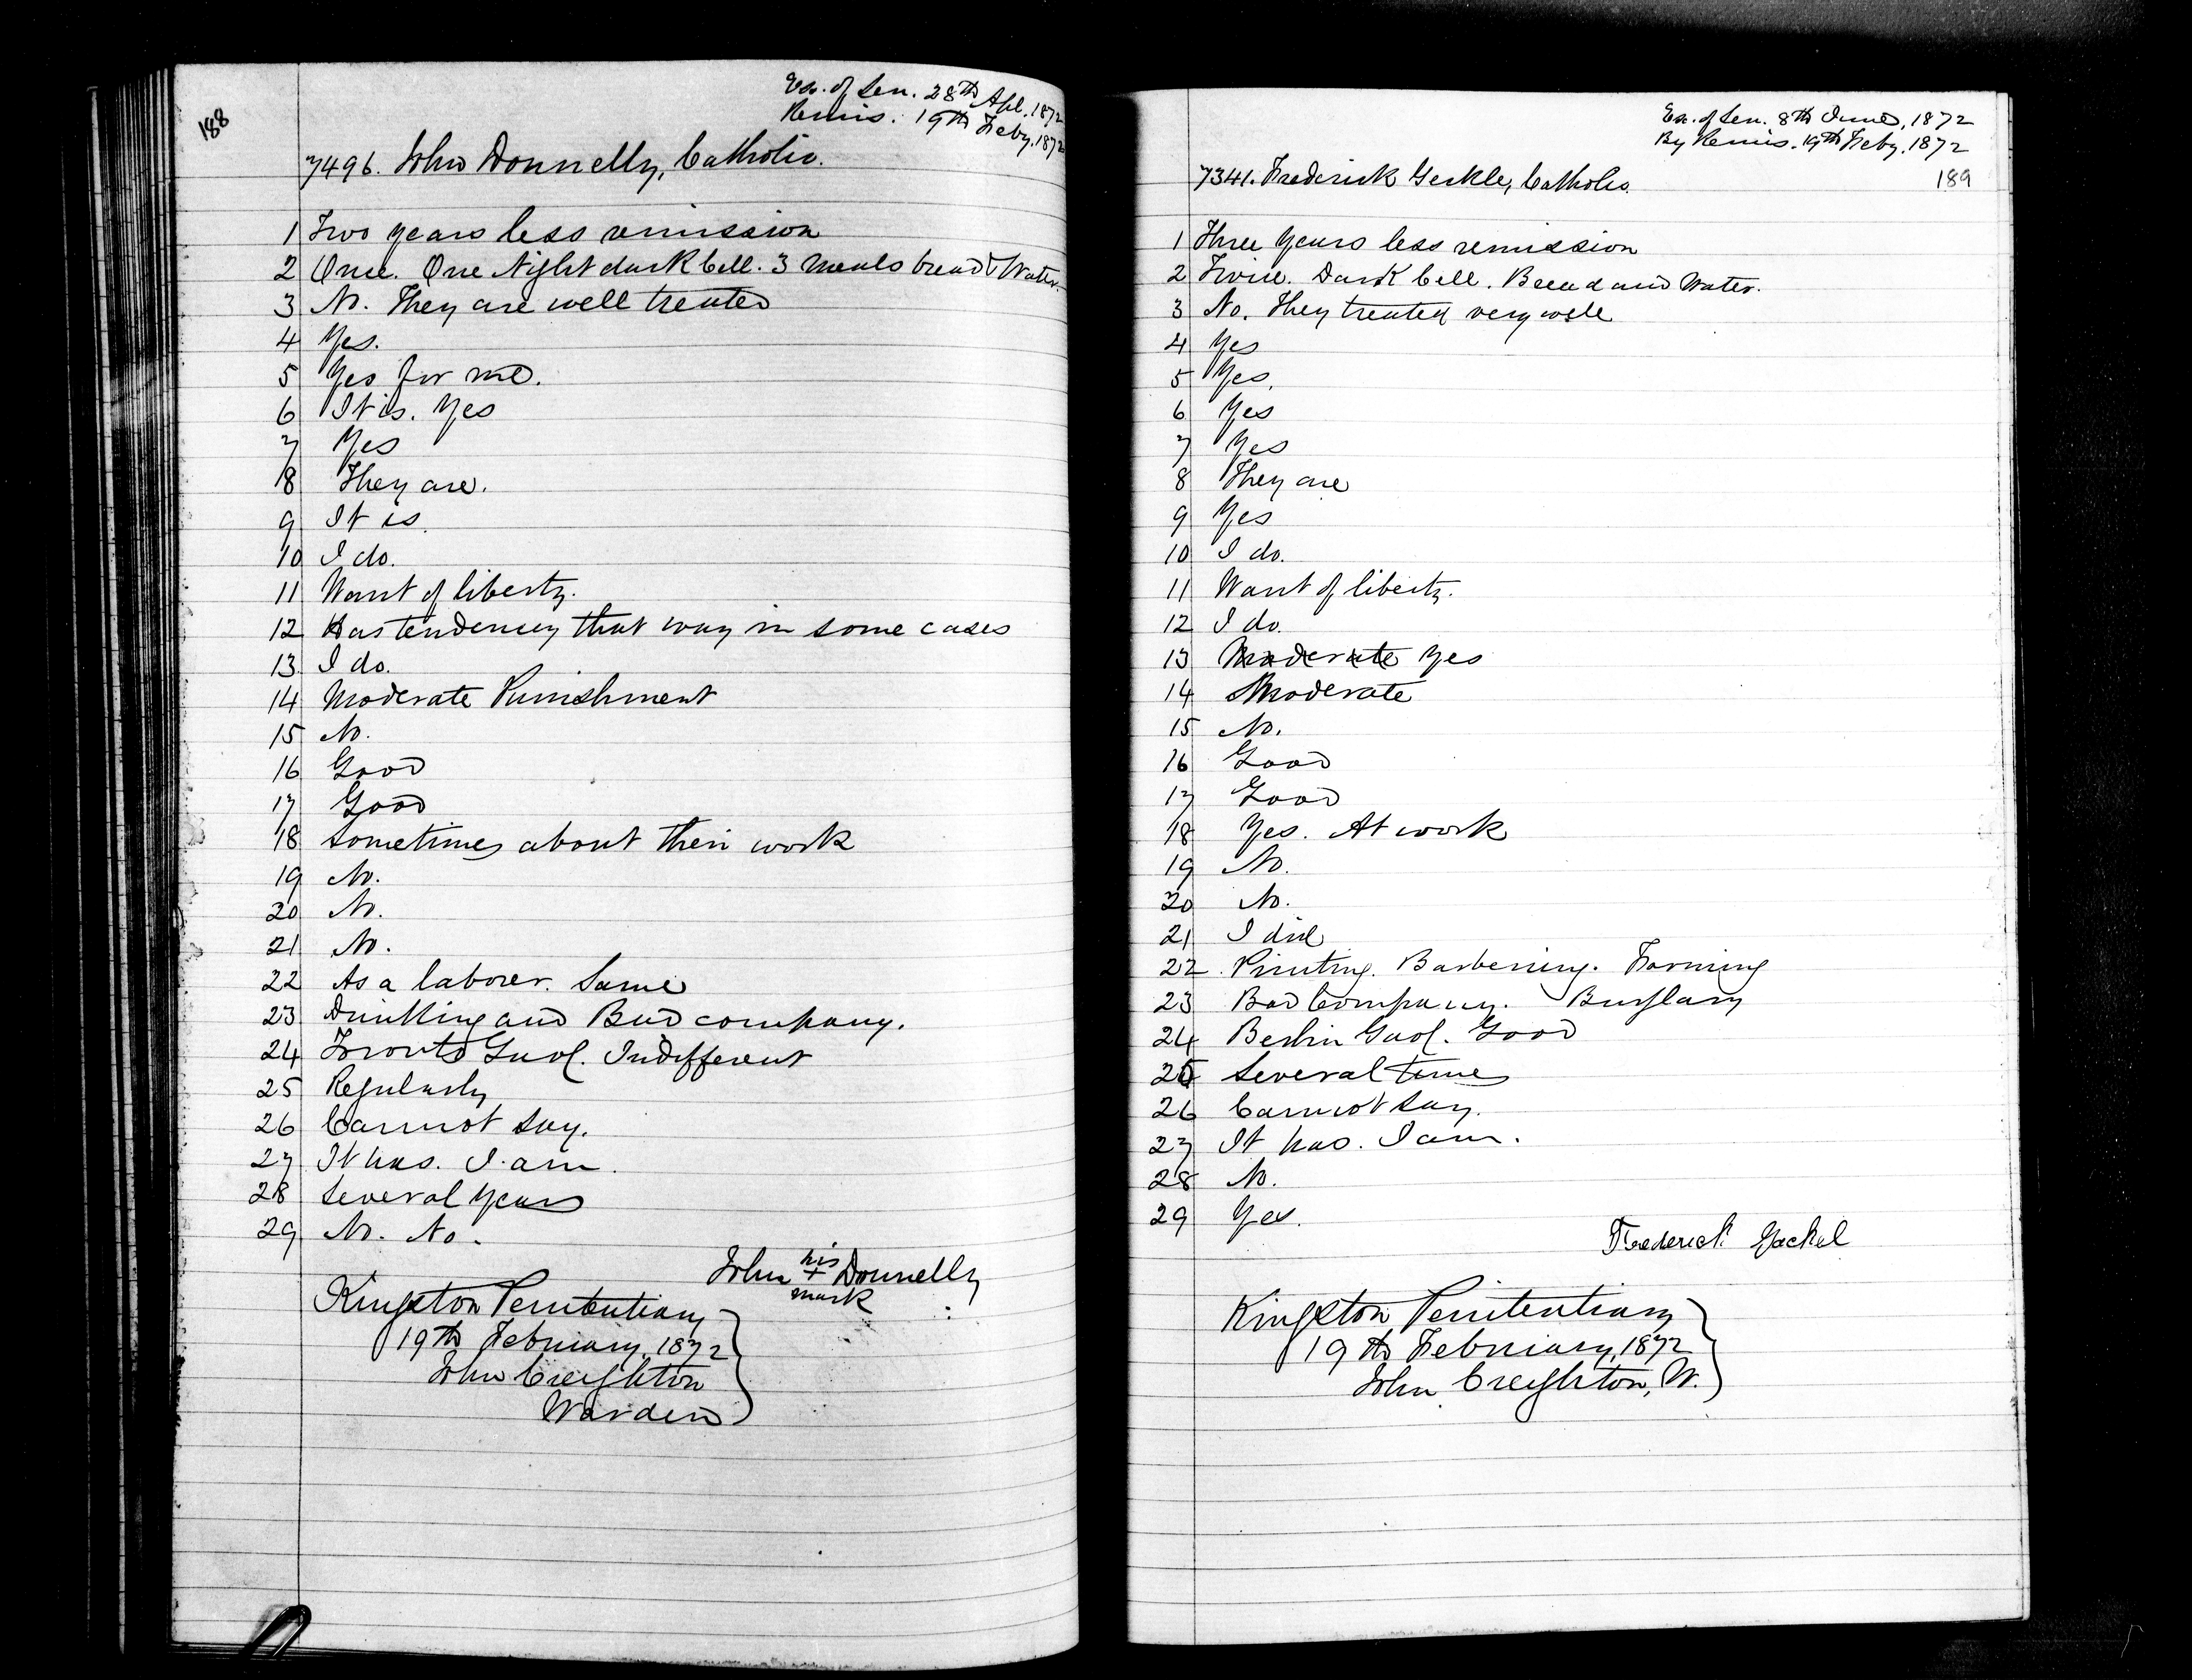 188
Ex. of Sen. 28th Apl. 1872
Remis. 19th Feby. 1872
7496. John Donnelly, Catholic.
1 Two years less remission
2 Once. One Night dark Cell. 3 Meals bread & Water.
3 No. They are well treated
4 Yes.
5 Yes for me.
6 It is. Yes
7 Yes
8 They are.
9 It is.
10 I do.
11 Want of liberty.
12 Has tendency that way in some cases
13 I do.
14 Moderate Punishment
15 No.
16 Good
17 Good
18 Sometimes about their work
19 No.
20 No.
21 No.
22 As a laborer. Same
23 Drinking and Bad company.
24 Toronto Gaol. Indifferent
25 Regularly
26 Cannot say.
27 It has. I am.
28 Several Years
29 No. No.
John his + mark Donnelly
Kingston Penitentiary
19th February, 1872
John Creighton
Warden
Ex. of Sen. 8th June, 1872
By Remis. 19th Feby. 1872
189
7341. Frederick Gerkle, Catholic.
1 Three Years less remission
2 Twice. Dark Cell. Bread and Water.
3 No. They treated very well
4 Yes
5 Yes.
6 Yes
7 Yes
8 They are
9 Yes
10 I do.
11 Want of liberty.
12 I do.
13 Moderate Yes
14 Moderate
15 No.
16 Good
17 Good
18 Yes. At work
19 No.
20 No.
21 I did
22 Printing. Barbering. Farming
23 Bad Company. Burglary
24 Berlin Gaol. Good
25 Several times
26 Cannot say.
27 It has. I am.
28 No.
29 Yes.
Frederick Gackel
Kingston Penitentiary
19th February, 1872
John Creighton, W.